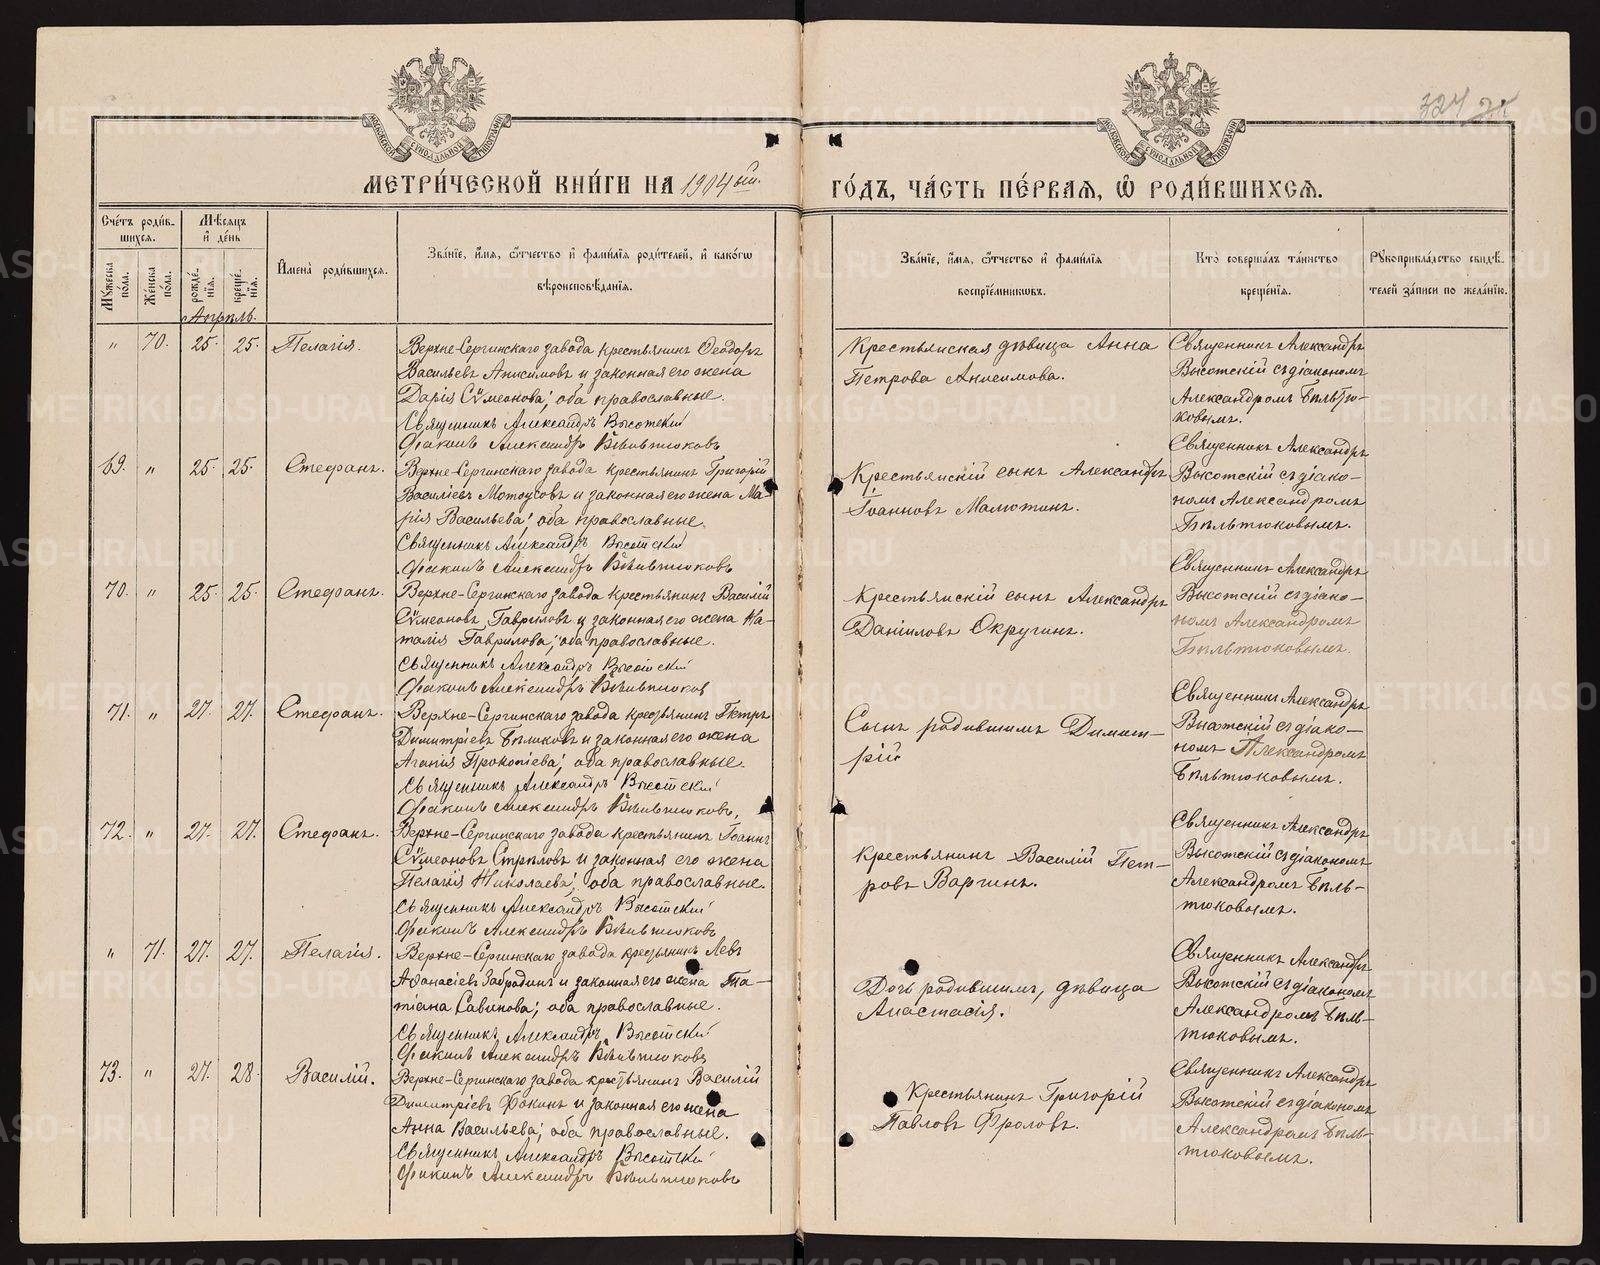 324
МЕТРИ́ЧЕСКОЙ КНИ́ГИ НА 1904ый.
ГО́ДЪ, ЧА́СТЬ ПЕ́РВАѦ, Ѿ РОДИ́ВШИХСѦ.
Сче́тъ роди́в-
шихсѧ.
Мꙋ́жеска по́ла.
Же́нска по́ла.
Мѣ́сѧцъ
и҆ де́нь
рожде́-
нїѧ.
креще́-
нїѧ.
И҆мена̀ роди́вшихсѧ.
Зва́нїе, и҆́мѧ, ѻ҆́тчество и҆ фами́лїѧ роди́телей, и҆ како́гѡ
вѣроисповѣ́данїѧ.
Зва́нїе, и҆́мѧ, ѻ҆́тчество и҆ фами́лїѧ
воспрїе́мникѡвъ.
Кто̀ соверша́лъ та́инство
креще́нїѧ.
Рꙋкоприкла́дство свидѣ́-
телей за́писи по жела́нїю.
Апрѣль.
„ 70. 25. 25. Пелагія.
Верхне-Сергинскаго завода крестьянинъ Ѳеодоръ
Васильевъ Анисимовъ и законная его жена
Дарія Сѵмеонова; оба православные.
Священникъ Александръ Высотскій
Діаконъ Александръ Бѣльтюковъ
Крестьянская дѣвица Анна
Петрова Анисимова.
Священникъ Александръ
Высотскій съ діакономъ
Александромъ Бѣльтю-
ковымъ.
69. „ 25. 25. Стефанъ.
Верхне-Сергинскаго завода крестьянинъ Григорій
Василіевъ Мотоусовъ и законная его жена Ма-
рія Васильева; оба православные.
Священникъ Александръ Высотскій
Діаконъ Александръ Бѣльтюковъ
Крестьянскій сынъ Александръ
Іоанновъ Малютинъ.
Священникъ Александръ
Высотскій съ діако-
номъ Александромъ
Бѣльтюковымъ.
70. „ 25. 25. Стефанъ.
Верхне-Сергинскаго завода крестьянинъ Василій
Сѵмеоновъ Гавриловъ и законная его жена На-
талія Гаврилова; оба православные.
Священникъ Александръ Высотскій
Діаконъ Александръ Бѣльтюковъ
Крестьянскій сынъ Александръ
Даніиловъ Округинъ.
Священникъ Александръ
Высотскій съ діако-
номъ Александромъ
Бѣльтюковымъ.
71. „ 27. 27. Стефанъ.
Верхне-Сергинскаго завода крестьянинъ Петръ
Димитріевъ Бѣликовъ и законная его жена
Агапія Прокопіева; оба православные.
Священникъ Александръ Высотскій
Діаконъ Александръ Бѣльтюковъ
Сынъ родившихъ Димит-
рій
Священникъ Александръ
Высотскій съ діако-
номъ Александромъ
Бѣльтюковымъ.
72. „ 27. 27. Стефанъ.
Верхне-Сергинскаго завода крестьянинъ Іоаннъ
Сѵмеоновъ Стрѣловъ и законная его жена
Пелагія Николаева; оба православные.
Священникъ Александръ Высотскій
Діаконъ Александръ Бѣльтюковъ
Крестьянинъ Василій Пет-
ровъ Варгинъ.
Священникъ Александръ
Высотскій съ діакономъ
Александромъ Бѣль-
тюковымъ.
„ 71. 27. 27. Пелагія.
Верхне-Сергинскаго завода крестьянинъ Левъ
Аѳанасіевъ Забродинъ и законная его жена Та-
тіана Савинова; оба православные.
Священникъ Александръ Высотскій
Діаконъ Александръ Бѣльтюковъ
Дочь родившихъ, дѣвица
Анастасія.
Священникъ Александръ
Высотскій съ діакономъ
Александромъ Бѣль-
тюковымъ.
73. „ 27. 28. Василій.
Верхне-Сергинскаго завода крестьянинъ Василій
Димитріевъ Фокинъ и законная его жена
Анна Васильева; оба православные.
Священникъ Александръ Высотскій
Діаконъ Александръ Бѣльтюковъ
Крестьянинъ Григорій
Павловъ Фроловъ.
Священникъ Александръ
Высотскій съ діакономъ
Александромъ Бѣль-
тюковымъ.
METRIKI.GASO-URAL.RU